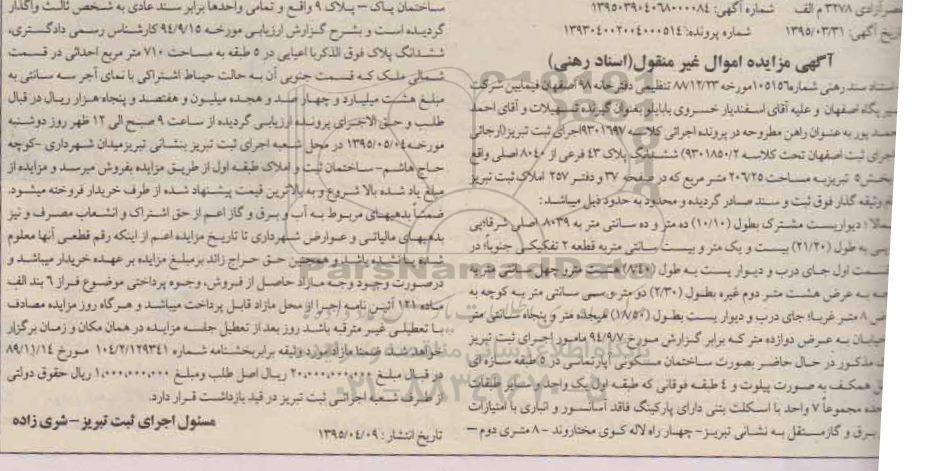 شماره آگهی: ۱۳۹۵۰۳۹۰۴۰۶۸۰۰۰۰۸۴
تاریخ آگهی: ۱۳۹۵/۰۳/۳۱ شماره پرونده: ۱۳۹۳۰۴۰۰۲۰۰۴۰۰۰۵۱۴
آگهی مزایده اموال غیر منقول (اسناد رهنی)
استناد سند رهنی شماره ۱۰۵۱۵۶ مورخه ۸۸/۱۲/۲۳ تنظیمی دفترخانه ۹۸ اصفهان فیمابین شرکت
پگاه اصفهان و علیه آقای اسفندیار خسروی بابایلو بعنوان گیرنده تسهیلات و آقای احمد
پور به عنوان راهن مطروحه در پرونده اجرائی کلاسه ۹۳۰۱۶۹۷ اجرای ثبت تبریز (ارجائی
اجرای ثبت اصفهان تحت کلاسه ۹۳۰۱۸۵۰/۲) ششدانگ پلاک ۴۳ فرعی از ۸۰۴۰ اصلی واقع
بخش ۵ تبریز به مساحت ۲۰۶/۲۵ متر مربع که در صفحه ۳۷ و دفتر ۲۵۷ املاک ثبت تبریز
وثیقه گذار فوق ثبت و سند صادر گردیده و محدود به حدود ذیل میباشد:
دیواریست مشترک بطول (۱۰/۱۰) ده متر و ده سانتی متر به ۸۰۳۹ اصلی شرقا؛ پی
به طول (۲۱/۲۰) بیست و یک متر و بیست سانتی متر به قطعه ۲ تفکیکی جنوبا؛ در
قسمت اول جای درب و دیوار یست به طول (۸/۴۰) هشت متر و چهل سانتی متر به
به عرض هشت متر دوم غیره بطول (۲/۳۰) دو متر و سی سانتی متر به کوچه به
۸ متر غربا؛ جای درب و دیوار یست بطول (۱۸/۵۰) هیجده متر و پنجاه سانتی متر
خیابان به عرض دوازده متر که برابر گزارش مورخ ۹۴/۹/۷ مامور اجرای ثبت تبریز
مذکور در حال حاضر بصورت ساختمان مسکونی آپارتمانی در ۵ طبقه سازه ای
همکف به صورت پیلوت و ۴ طبقه فوقانی که طبقه اول یک واحد و سایر طبقات
مجموعاً ۷ واحد با اسکلت بتنی دارای پارکینگ فاقد آسانسور و انباری با امتیازات
برق و گاز مستقل به نشانی تبریز – چهار راه لاله کوی مختاروند – ۸ متری دوم –
ساختمان پاک – پلاک ۹ واقع و تمامی واحدها برابر سند عادی به شخص ثالث واگذار
گردیده است و بشرح گزارش ارزیابی مورخه ۹۴/۹/۱۵ کارشناس رسمی دادگستری،
ششدانگ پلاک فوق الذکر با اعیانی در ۵ طبقه به مساحت ۷۱۰ متر مربع احداثی در قسمت
شمالی ملک که قسمت جنوبی آن به حالت حیاط اشتراکی با نمای آجر سه سانتی به
مبلغ هشت میلیارد و چهار صد و هجده میلیون و هفتصد و پنجاه هزار ریال در قبال
طلب و حق الاجرای پرونده ارزیابی گردیده از ساعت ۹ صبح الی ۱۲ ظهر روز دوشنبه
مورخه ۱۳۹۵/۰۵/۰۴ در محل شعبه اجرای ثبت تبریز بنشانی تبریز میدان شهرداری – کوچه
حاج هاشم – ساختمان ثبت و املاک طبقه اول از طریق مزایده بفروش میرسد و مزایده از
مبلغ یاد شده بالا شروع و به بالاترین قیمت پیشنهاد شده از طرف خریدار فروخته میشود.
ضمناً بدهیهای مربوط به آب و برق و گاز اعم از حق اشتراک و انشعاب مصرف و نیز
بدهیهای مالیاتی و عوارض شهرداری تا تاریخ مزایده اعم از اینکه رقم قطعی آنها معلوم
شده یا نشده باشد و همچنین حق حراج زائد بر مبلغ مزایده بر عهده خریدار میباشد و
در صورت وجود وجه مازاد حاصل از فروش، وجوه پرداختی موضوع فراز ۶ بند الف
ماده ۱۲۱ آئین نامه اجرا از محل مازاد قابل پرداخت میباشد و هرگاه روز مزایده مصادف
با تعطیلی غیر مترقبه باشد روز بعد از تعطیل جلسه مزایده در همان مکان و زمان برگزار
خواهد شد ضمنا مازاد مورد وثیقه برابر بخشنامه شماره ۱۰۴/۲/۱۲۹۳۴۱ مورخ ۸۹/۱۱/۱۴
در قبال مبلغ ۲۰,۰۰۰,۰۰۰,۰۰۰ ریال اصل طلب و مبلغ ۱,۰۰۰,۰۰۰,۰۰۰ ریال حقوق دولتی
از طرف شعبه اجرائی ثبت تبریز در قید بازداشت قرار دارد.
تاریخ انتشار: ۱۳۹۵/۰۴/۰۹
مسئول اجرای ثبت تبریز – شری زاده
ParsNamadData
۰۲۱-۸۸۳۴۹۶۷۰-۵